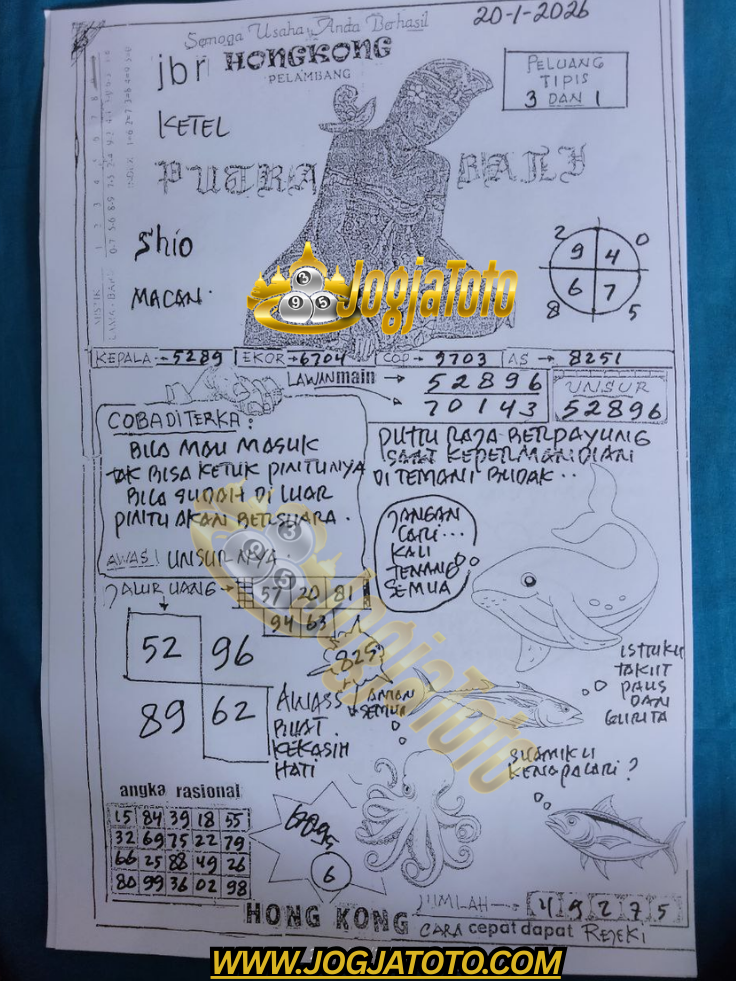 Semoga Usaha Anda Berhasil
20-1-2026
jbr HONGKONG
PELAMBANG
PELUANG
TIPIS
3 DAN 1
KETEL
PUTRA BALI
Shio
MACAN.
2 0
9 4
6 7
8 5
JogjaToto
KEPALA → 5289 EKOR → 6704 COP → 9703 AS → 8251
LAWAN main → 52896
70143
UNSUR
52896
COBA DI TERKA :
BILA MAU MASUK
TAK BISA KETUK PINTUNYA
BILA SUDAH DI LUAR
PINTU AKAN BERSUARA.
AWAS! UNSURNYA.
PUTU RAJA BERPAYUNG
SAAT KEPERMANDIAN
DI TEMANI BUDAK..
JANGAN
CARI...
KALI
TENANG
SEMUA
JALUR UANG →
57 20 81
94 63 1
825
52 96
89 62
AWASS
PUSAT.
KEKASIH
HATI
AMAN
SEMUA
JogjaToto
ISTRIKU
TAKUT
PAUS
DAN
GURITA
SUAMIKU
KENAPA LARI ?
angka rasional
15 84 39 18 55
32 69 75 22 79
66 25 88 49 26
80 99 36 02 98
6
JUMLAH → 4 9 2 7 5
HONG KONG CARA cepat dapat REJEKI
WWW.JOGJATOTO.COM